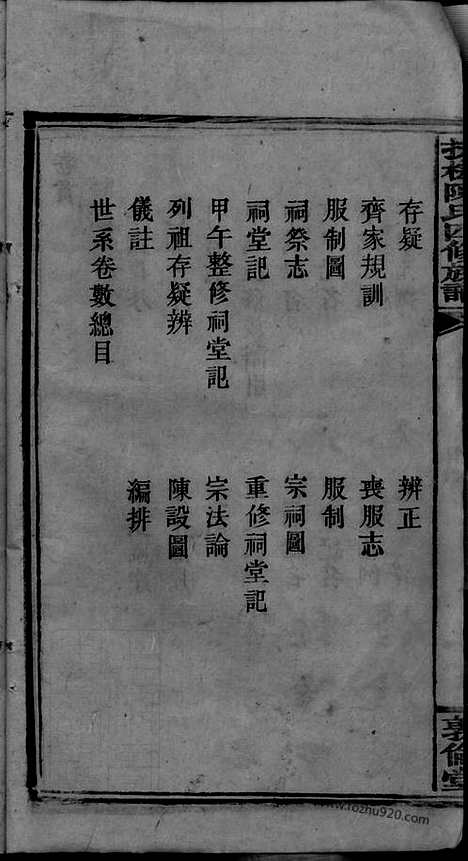 存疑
辨正
齊家規訓
喪服志
服制圖
服制
祠祭志
宗祠圖
祠堂記
重修祠堂記
甲午整修祠堂記
宗法論
列祖存疑辨
陳設圖
儀註
編排
世系卷數總目
陳氏四修族譜
敦倫堂
www.fozhu920.com